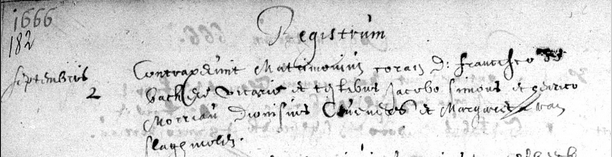 1666
182
Registrum
Septembris Contraxerunt Matrimonium coram d: francisco
2 vicario et testibus Jacobo simons et
Moreau dionisius et Margareta van
slaghmolen